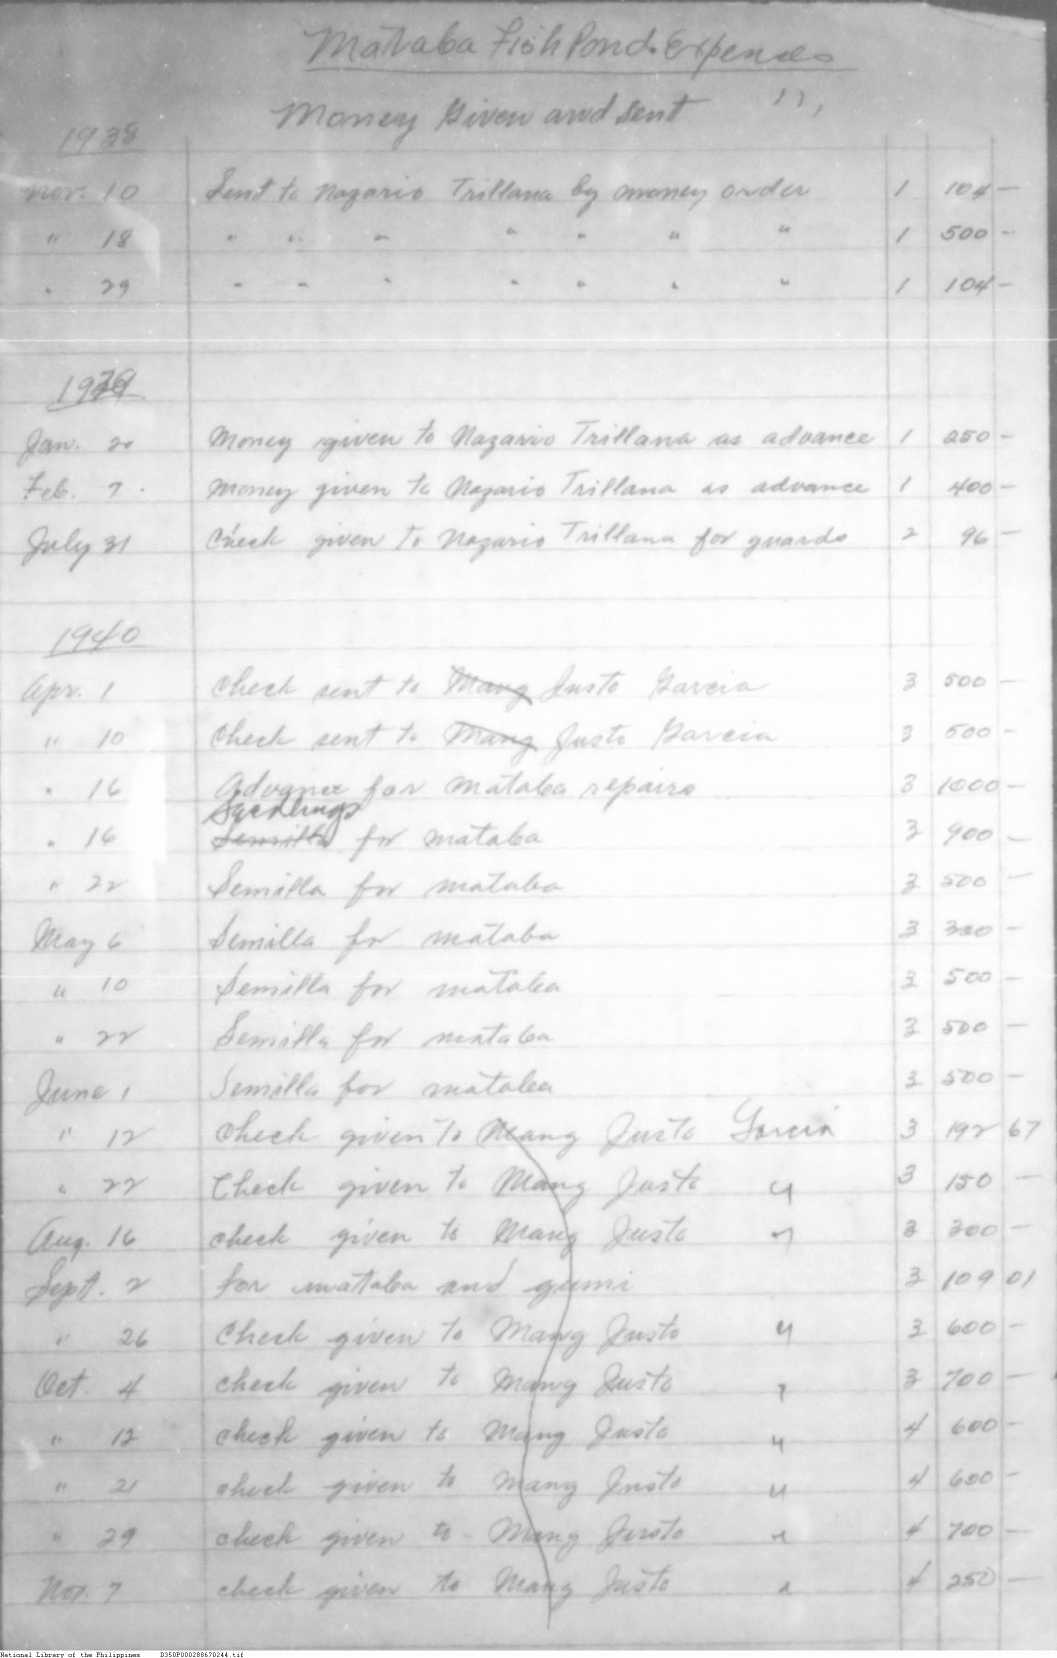 Mataba Fish Pond Expenses
Money Given and Sent
1938
Nov. 10 Sent to Nazario Trillana by money order 1 104 —
" 18 " " " " " " " 1 500 —
" 29 " " " " " " " 1 104 —
1939
Jan. 20 Money given to Nazario Trillana as advance 1 250 —
Feb. 7 Money given to Nazario Trillana as advance 1 400 —
July 31 Check given to Nazario Trillana for guards 2 96 —
1940
Apr. 1 Check sent to Mang Justo Garcia 3 500 —
" 10 Check sent to Mang Justo Garcia 3 500 —
" 16 Advance for Mataba repairs 3 1000 —
Seedlings
" 16 Semilla for mataba 3 900 —
" 22 Semilla for mataba 3 500 —
May 6 Semilla for mataba 3 300 —
" 10 Semilla for mataba 3 500 —
" 22 Semilla for mataba 3 500 —
June 1 Semilla for mataba 3 500 —
" 12 Check given to Mang Justo Garcia 3 192 67
" 22 Check given to Mang Justo " 3 150 —
Aug. 16 check given to Mang Justo " 3 300 —
Sept. 2 for mataba and gumi 3 109 01
" 26 Check given to Mang Justo " 3 600 —
Oct. 4 check given to Mang Justo " 3 700 —
" 12 check given to Mang Justo " 4 600 —
" 21 check given to Mang Justo " 4 600 —
" 29 check given to Mang Justo " 4 700 —
Nov. 7 check given to Mang Justo " 4 250 —
National Library of the Philippines D350P000288670244.tif